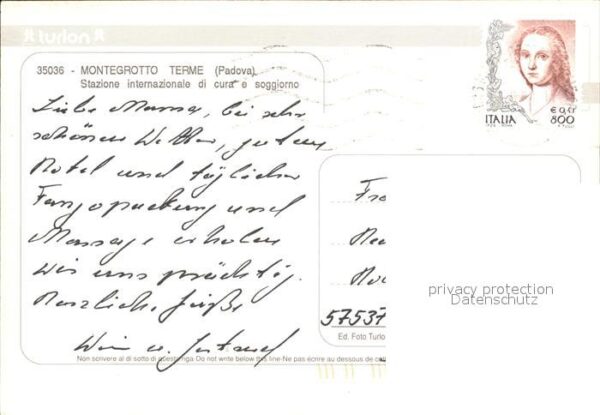 turlon
35036 - MONTEGROTTO TERME (Padova)
Stazione internazionale di cura e soggiorno
Liebe Mama, bei sehr
schönem Wetter, gutem
Hotel und täglicher
Fangopackung und
Massage erholen
wir uns prächtig.
Herzliche Grüße
u.
Non scrivere al di sotto di questa riga·Do not write below this line·Ne pas écrire au dessous de
ITALIA
€ 0,41
800
Fr
57537
Ed. Foto Turlo
privacy protection
Datenschutz